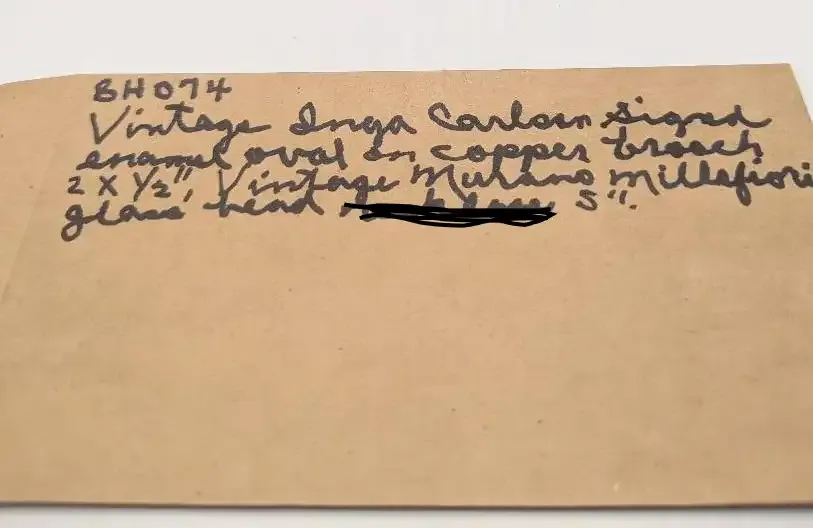 BH074
Vintage Inga Carlson Signed
enamel oval on copper broach
2 X 1/2", Vintage Murano Millefiori
glass bead 5".